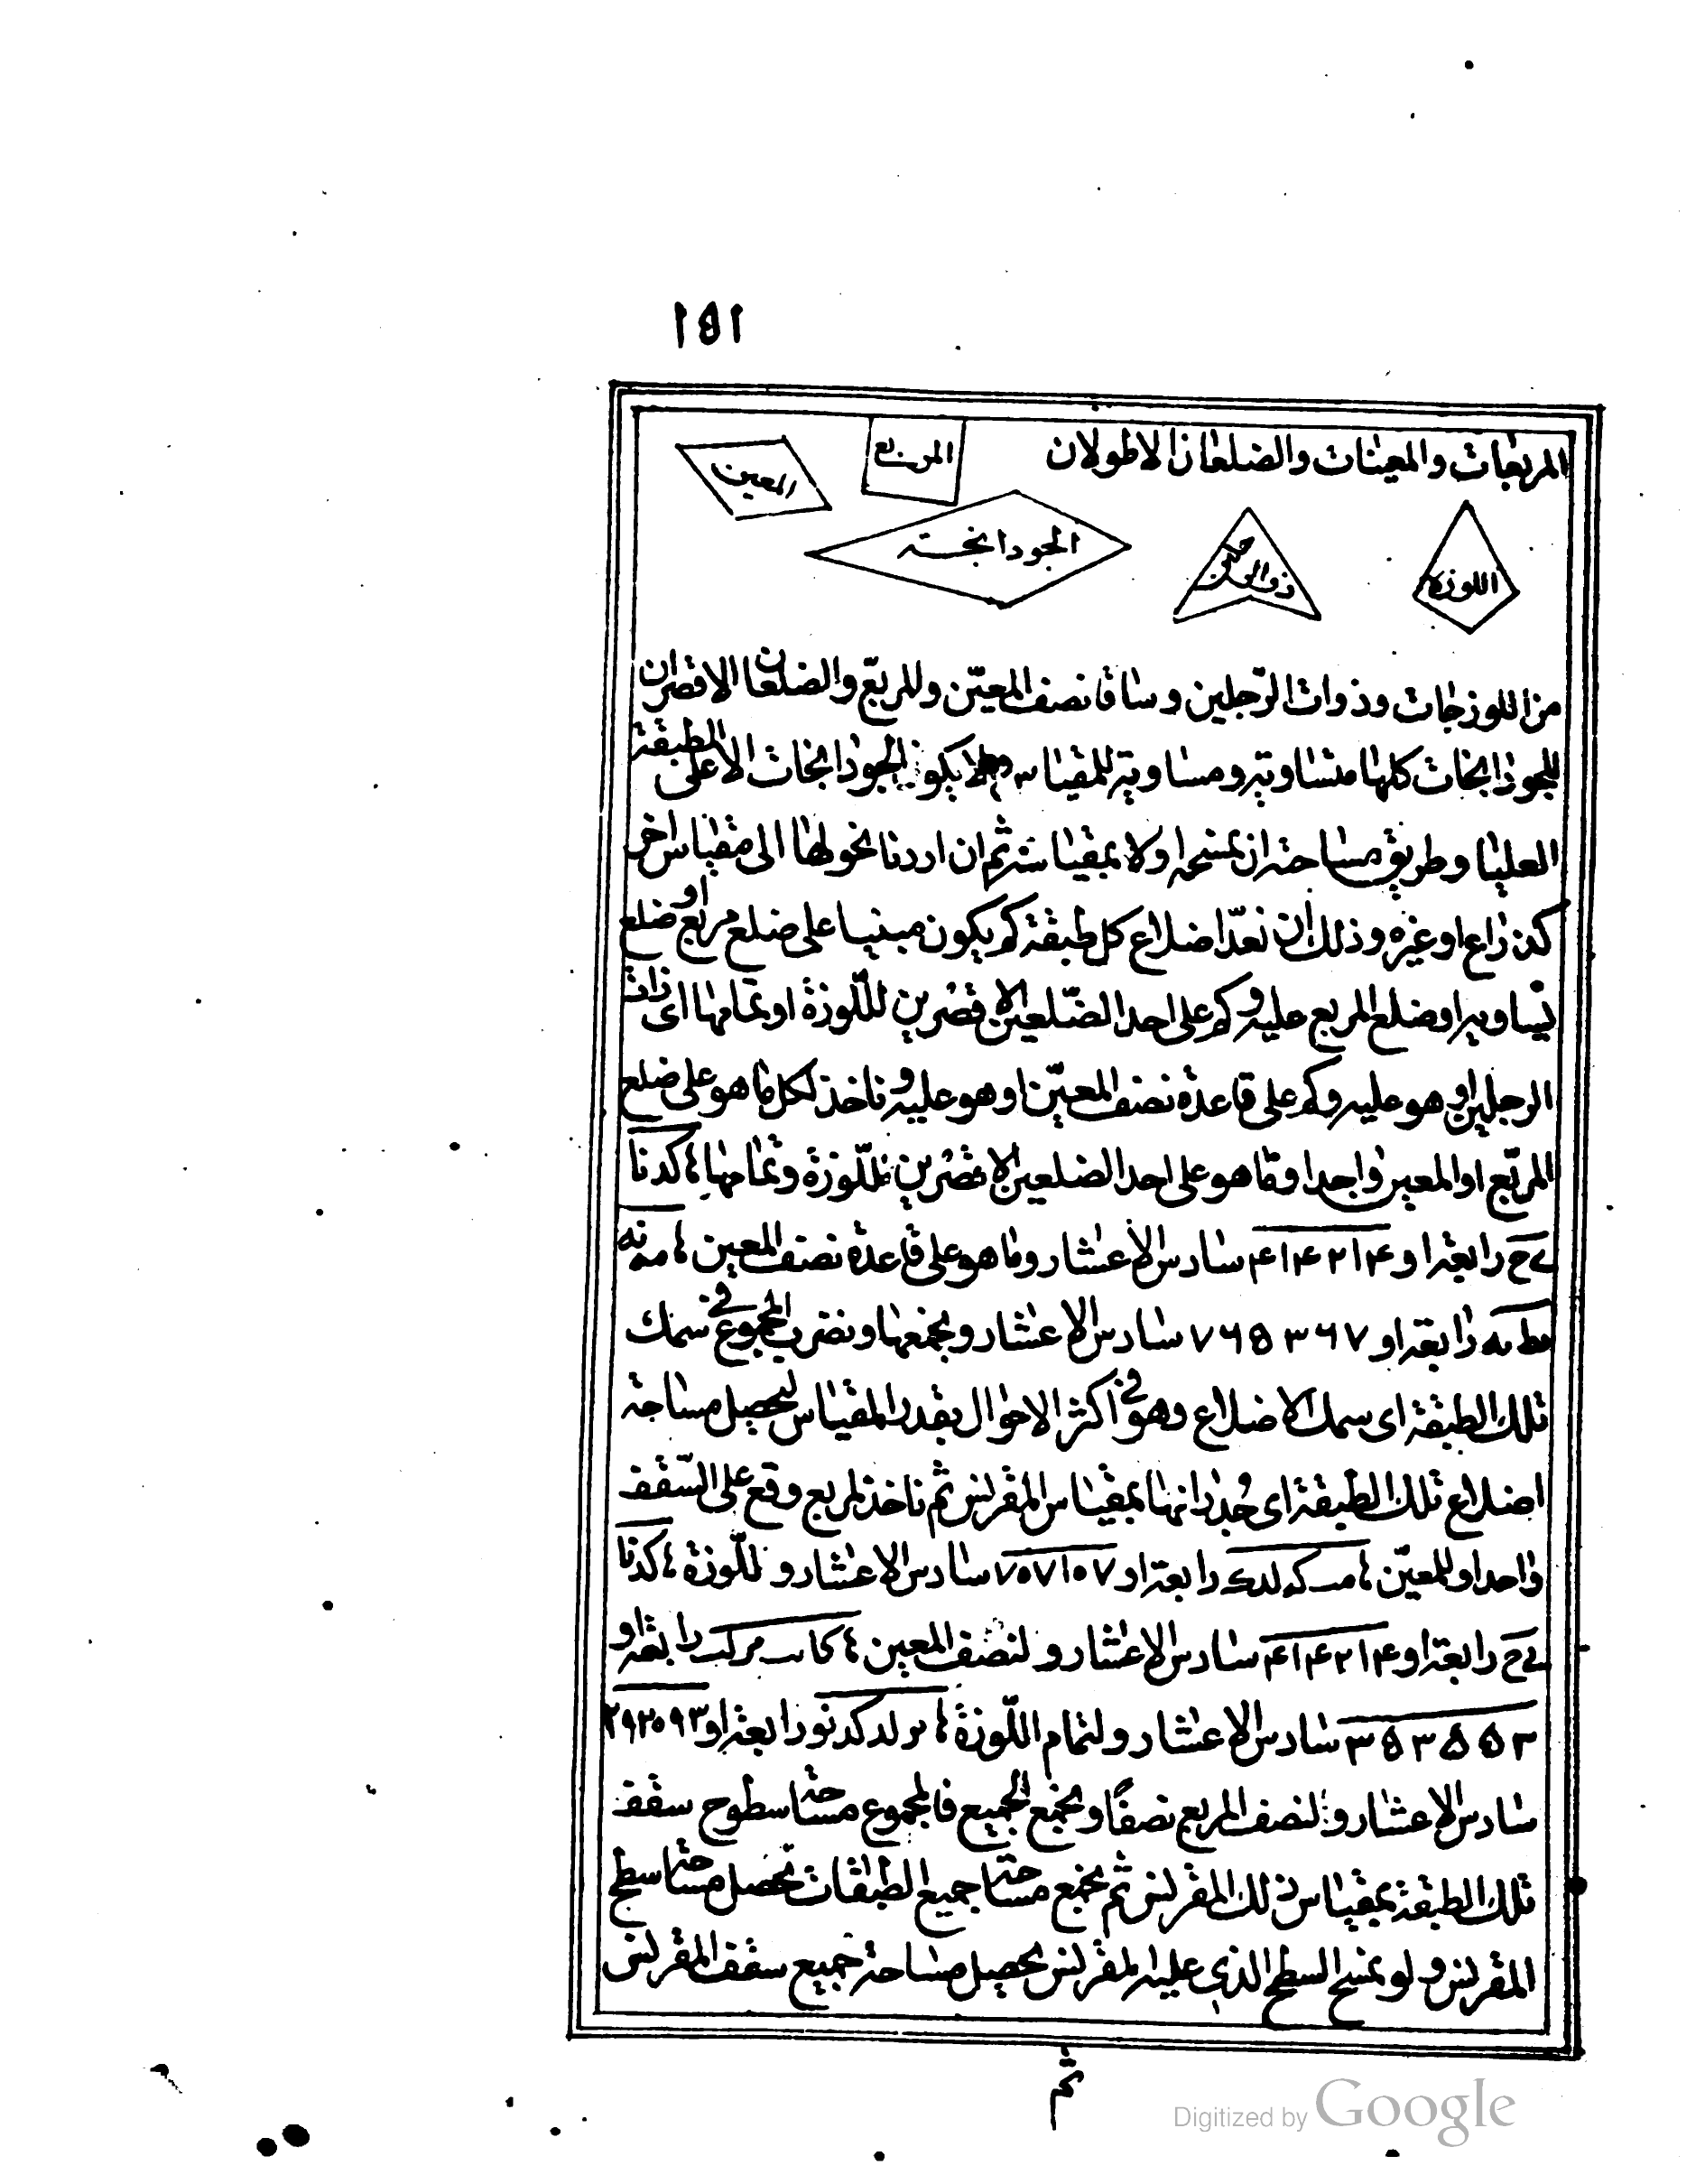 ١٥١
المربعات والمعينات والضلعان الاطولان
المربع
المعين
اللوزة
ذو الرجلين
الجودانجسته
من اللوزجات وذوات الرّجلين وساقا نصف المعيّن وللمربّع والضلعان الاقصران
للجوذانجات كلها متساويه ومساويه للمقياس ولا يكون الجوذانجات الا على الطبقة
العليا وطريق مساحته ان نمسحه اولا بمقياسه ثم ان اردنا نحولها الى مقياس اخر
كذراع او غيره وذلك ان نعدّ اضلاع كل طبقة كم يكون مبنيا على ضلع مربع او ضلع
يساويه او ضلع المربع عليه وكم على احد الضّلعين الاقصرين للّوزة او تمامها اى ذات
الرجلين او هو عليه وكم على قاعدة نصف المعيّن او هو عليه وناخذ لكل ما هو على ضلع
المربّع او المعين واحدا وما هو على احد الضلعين الاقصرين للّوزة وتمامها ۰ا كدنا
ے ح رابعة او ۴۱۴۲۱۴ سادس الاعشار وما هو على قاعدة نصف المعين ۰ا مه نه
مط نه رابعة او ۷۶۵۳۶۷ سادس الاعشار ونجمعها ونضرب المجموع فى سمك
تلك الطبقة اى سمك الاضلاع وهو فى اكثر الاحوال بقدر المقياس ليحصل مساحة
اضلاع تلك الطبقة اى جدرانها بمقياس المقرنس ثم ناخذ لمربع وقع على السّقف
واحدا وللمعيّن ۰ا مب كه لدك رابعة او ۷۰۷۱۰۷ سادس الاعشار و للّوزة ۰ا كدنا
ے ح رابعة او ۴۱۴۲۱۴ سادس الاعشار و لنصف المعين ۰ا كا مركب رابعة او
۳۵۳۵۵۳ سادس الاعشار ولتمام اللّوزة ۰ا لد كد نو رابعة او ۲۹۲۰۹۳
سادس الاعشار و لنصف المربع نصفًا ونجمع الجميع فالمجموع مساحة سطوح سقف
تلك الطبقة بمقياس ذلك المقرنس ثم نجمع مساحة جميع الطبقات تحصل مساحة سطح
المقرنس ولو نمسح السطح الذى عليه المقرنس يحصل مساحة جميع سقف المقرنس
ثم
Digitized by Google